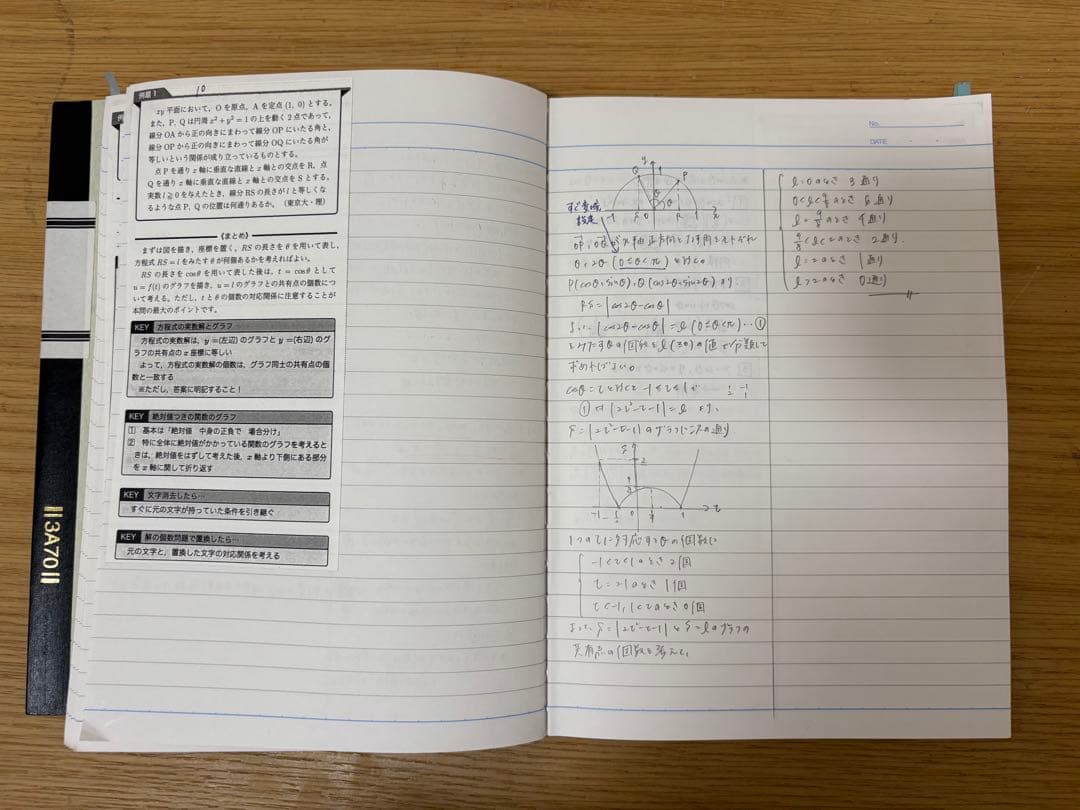 例題1
10
xy 平面において、O を原点、A を定点 (1, 0) とする。
また、P, Q は円周 x²+y²=1 の上を動く2点であって、
線分 OA から正の向きにまわって線分 OP にいたる角と、
線分 OP から正の向きにまわって線分 OQ にいたる角が
等しいという関係が成り立っているものとする。
点 P を通り x 軸に垂直な直線と x 軸との交点を R、点
Q を通り x 軸に垂直な直線と x 軸との交点を S とする。
実数 l≧0 を与えたとき、線分 RS の長さが l と等しくな
るような点 P, Q の位置は何通りあるか。(東京大・理)
《まとめ》
まずは図を描き、座標を置く。RS の長さを θ を用いて表し、
方程式 RS=l をみたす θ が何個あるかを考えればよい。
RS の長さを cosθ を用いて表した後は、t = cosθ として
u=f(t) のグラフを描き、u=l のグラフとの共有点の個数につ
いて考える。ただし、t と θ の個数の対応関係に注意することが
本問の最大のポイントです。
KEY 方程式の実数解とグラフ
方程式の実数解は、y=(左辺) のグラフと y=(右辺) のグ
ラフの共有点の x 座標に等しい
よって、方程式の実数解の個数は、グラフ同士の共有点の個
数と一致する
※ただし、答案に明記すること!
KEY 絶対値つきの関数のグラフ
① 基本は「絶対値 中身の正負で 場合分け」
② 特に全体に絶対値がかかっている関数のグラフを考えると
きは、絶対値をはずして考えた後、x 軸より下側にある部分
を x 軸に関して折り返す
KEY 文字消去したら…
すぐに元の文字が持っていた条件を引き継ぐ
KEY 解の個数問題で置換したら…
元の文字と、置換した文字の対応関係を考える
3A70
No.
DATE
y
1
Q
P
θ
θ
-1 S O R 1 x
すぐ変域
設定
θ, 2θ (0≦θ<2π) とおくと
P(cosθ, sinθ), Q(cos2θ, sin2θ) より
RS = |cos2θ-cosθ|
よって |cos2θ-cosθ| = l (0≦θ<2π) … ①
をみたすθの個数を l(≧0) の値で分類して
求めればよい。
cosθ = t とおくと -1≦t≦1 で
①は |2t²-t-1| = l より、
S = |2t²-t-1| のグラフは次の通り
2
-1 0 1 t
1つのtに対応するθの個数は
-1<t<1 のとき 2個
t=±1 のとき 1個
t<-1, 1<t のとき 0個
よって S = |2t²-t-1| と S = l のグラフの
共有点の個数を考えて、
l=0 のとき 3通り
l=9/8 のとき 4通り
9/8<l<2 のとき 2通り
l=2 のとき 1通り
l>2 のとき 0通り